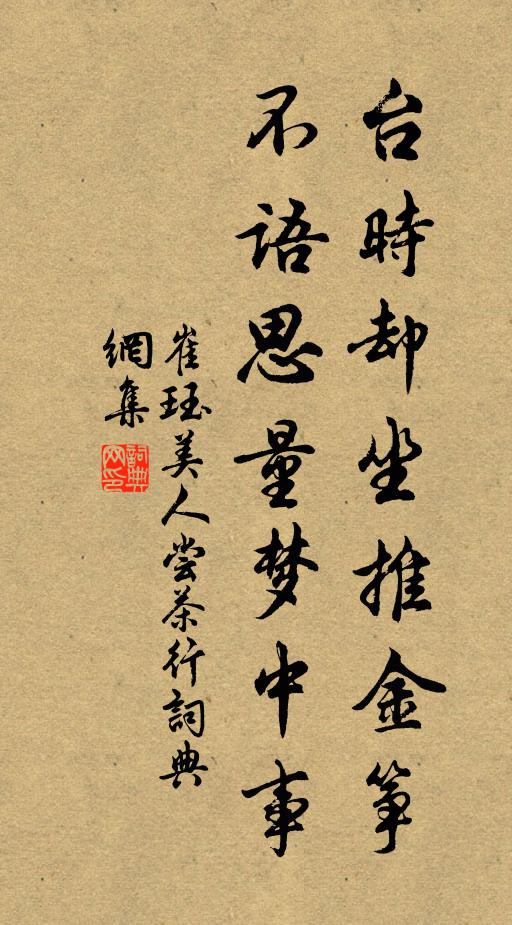 台時却坐推金筝
不語思量梦中事
崔珏美人尝茶行詞典
網集
詞典
网印